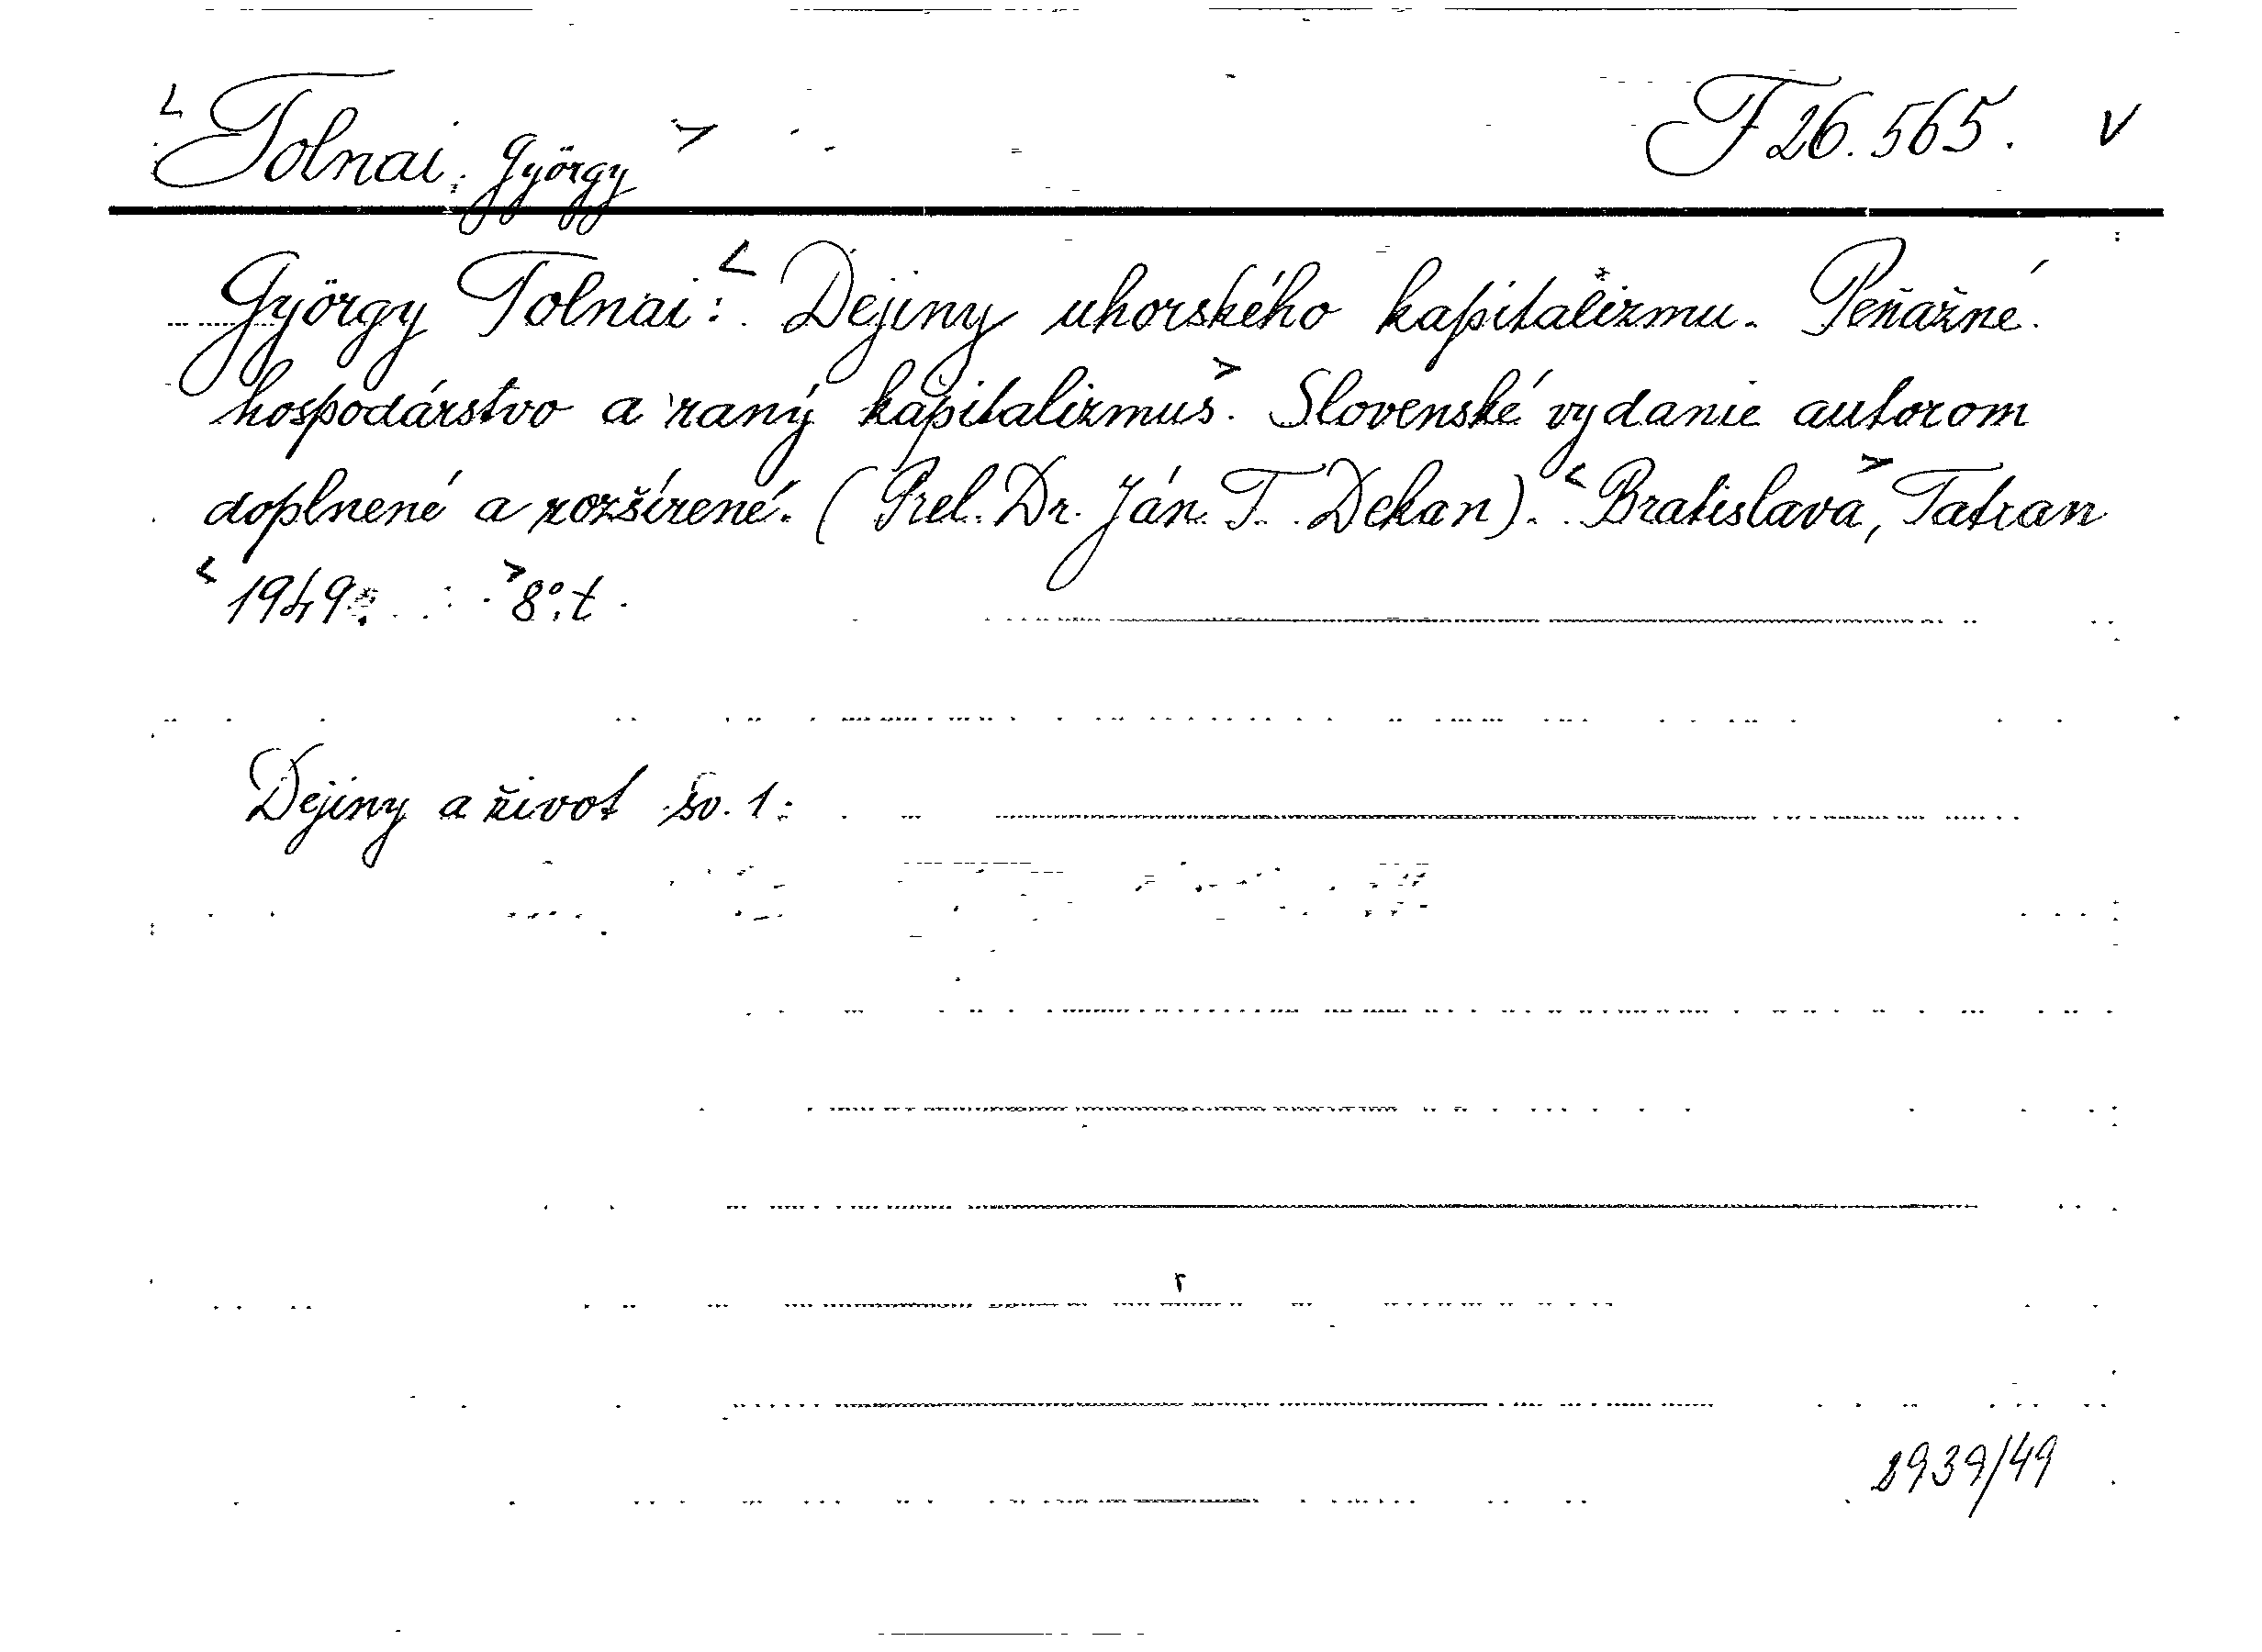 <Tolnai, György> F 26.565. V
György Tolnai: <Dejiny uhorského kapitalizmu. Peňažné
hospodárstvo a raný kapitalizmus>. Slovenské vydanie autorom
doplnené a rozšírené. (Prel. Dr. Ján T. Dekan). <Bratislava>, Tatran
<1949. > 8°. t.
Dejiny a život sv. 1.
2939/49